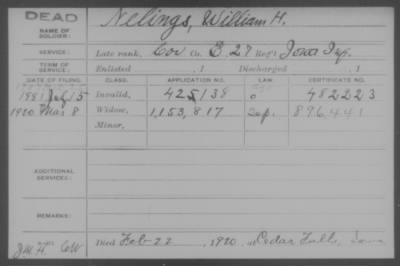 DEAD
Nelings, William H.
NAME OF SOLDIER:
SERVICE: Late rank, Cor Co. E 27 Reg't Iowa Inf.
TERM OF SERVICE: Enlisted , 1 Discharged , 1
DATE OF FILING. CLASS. APPLICATION NO. LAW. CERTIFICATE NO.
1881 July 15 Invalid, 425138 482223
1920 Mar 8 Widow, 1,153,817 Sep. 896,441
Minor,
ADDITIONAL SERVICES:
REMARKS:
Died Feb 22, 1920, at Cedar Falls, Iowa